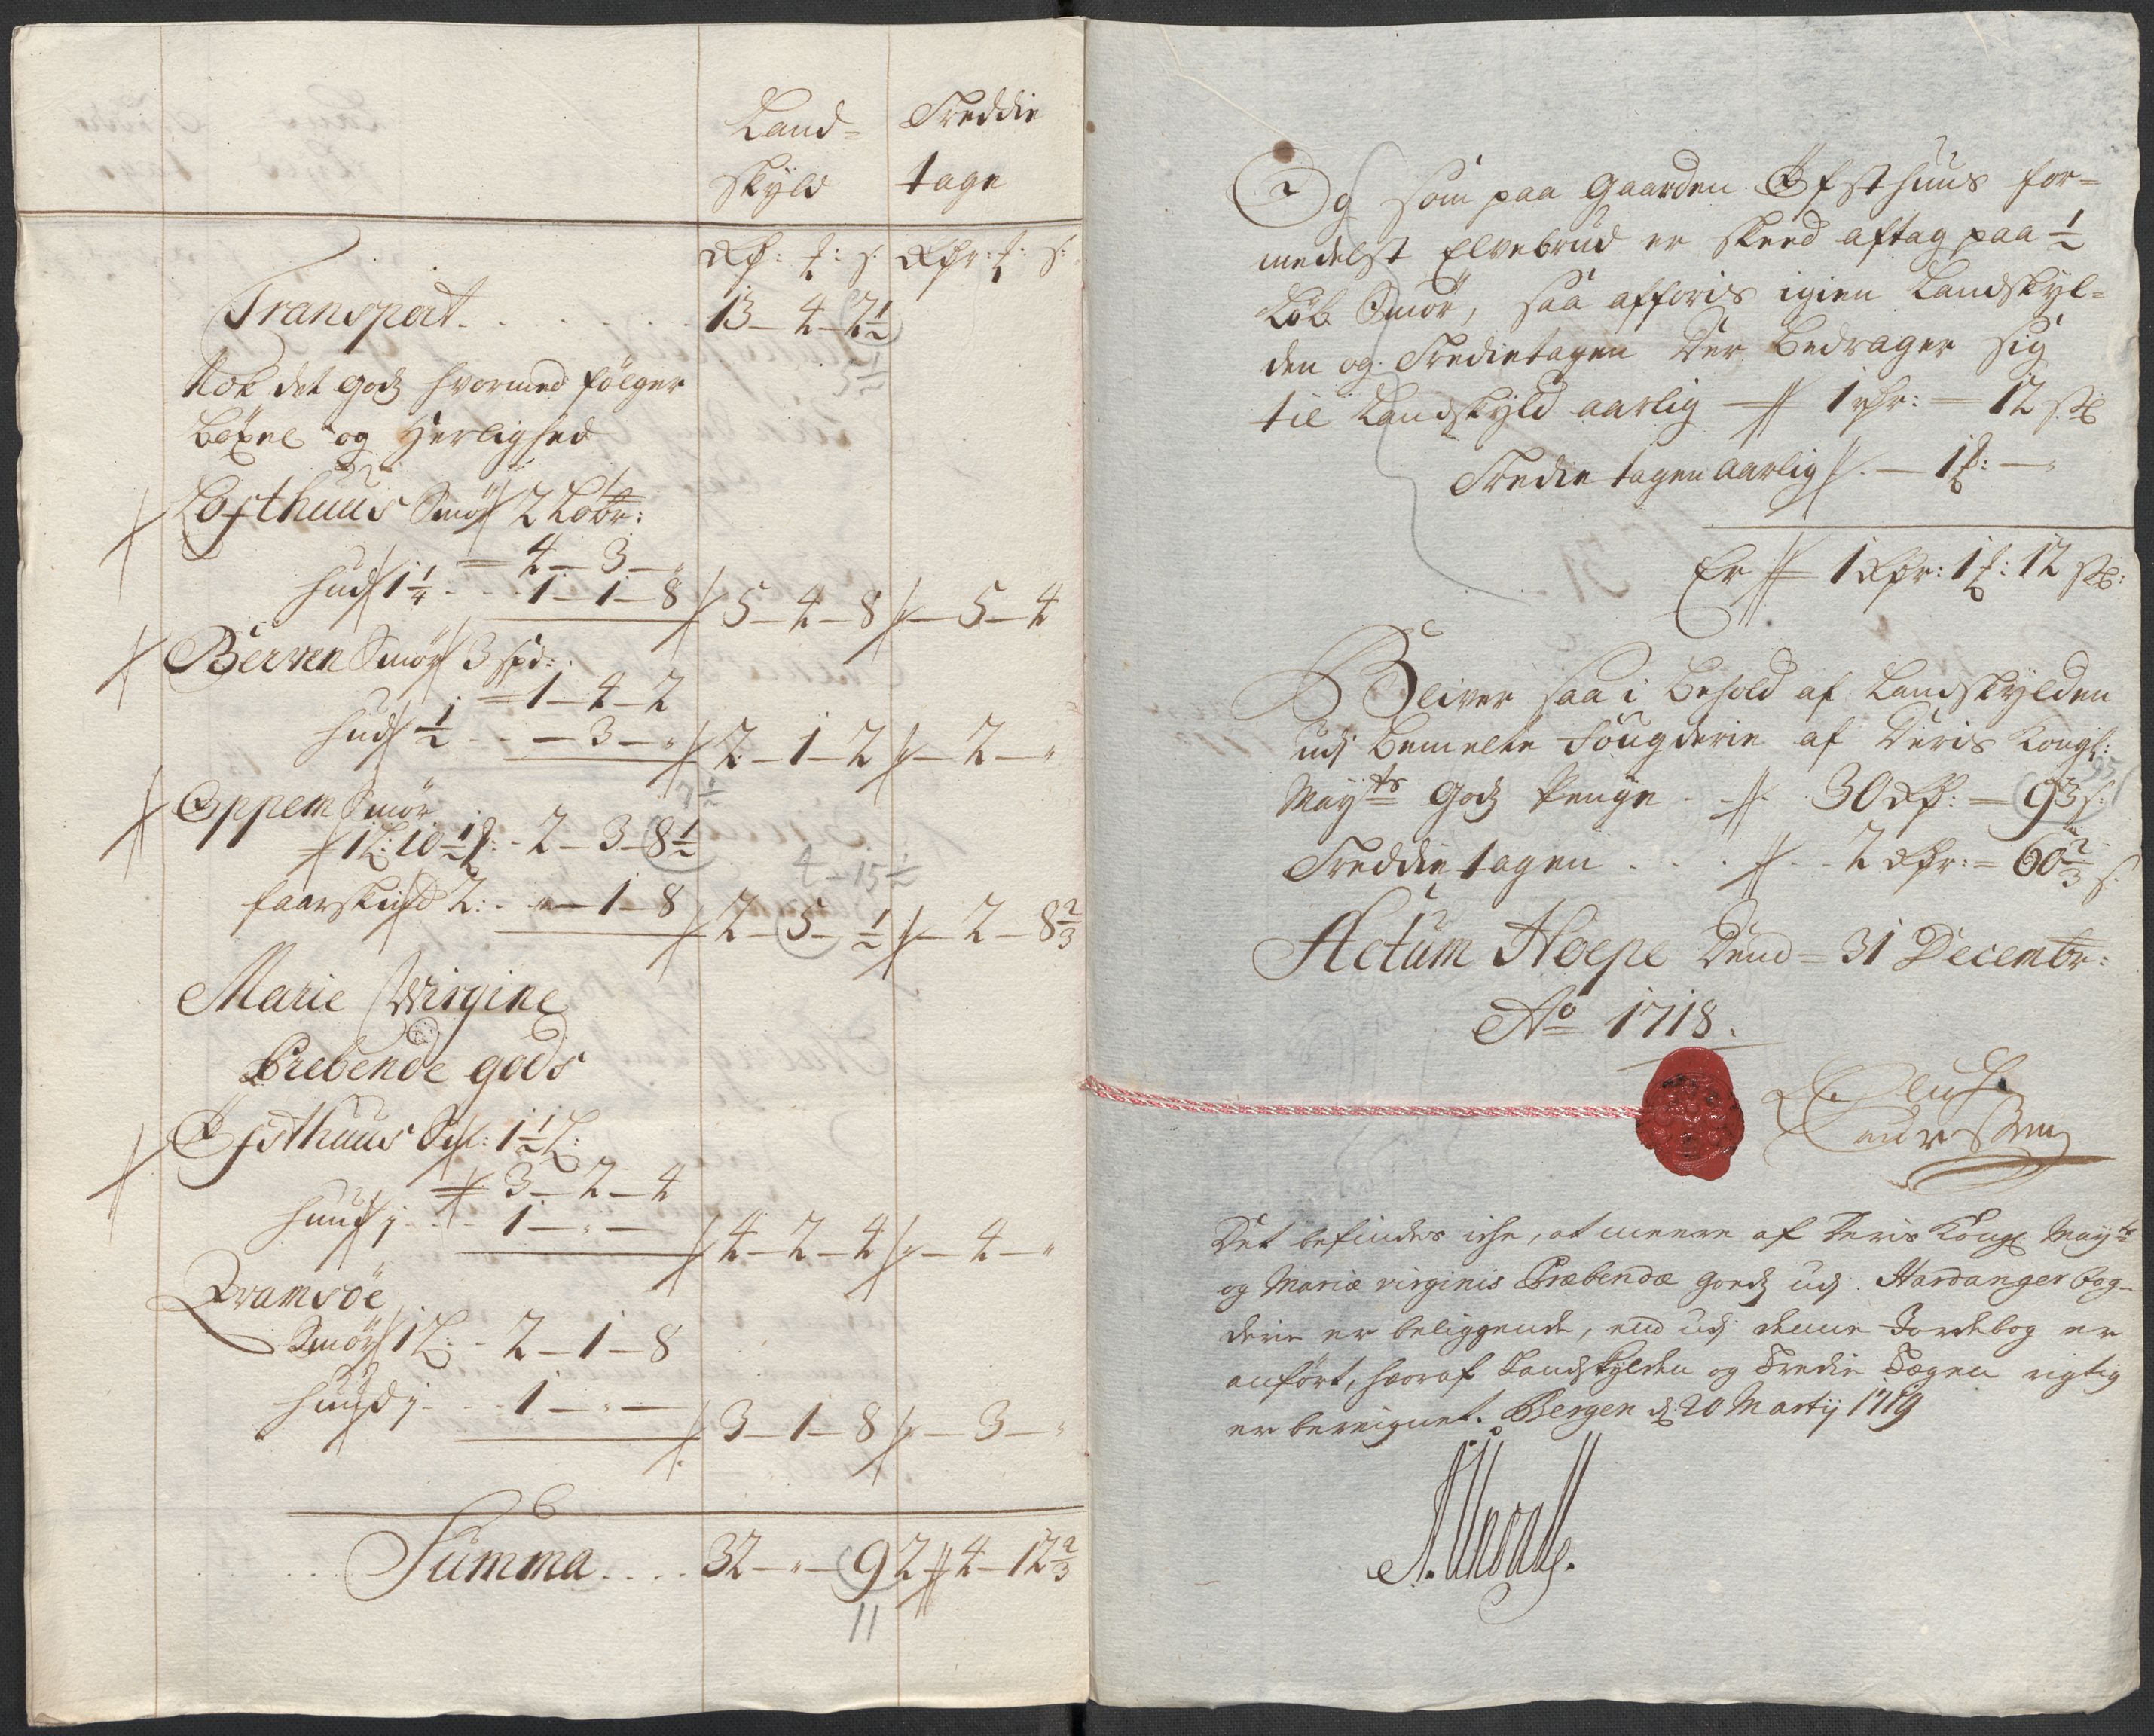 Land= Treddie
Skyld tage
Rdr: ƒ: s: Rdr: ƒ: s:
Transport. . . . . . . 13 – 4 – 2½
5½
Nok det Godz hvormed følger
Böxel og Herlighed
Lofthuus Smör 2 Löbr:
= 4 – 3 – „
hud 1¼ . . . 1 – 1 – 8 5 – 4 – 8 – 5 – 4
Berven Smör 3 spd:
= 1 – 4 – 2
hud ½ . . – 3 – „ 2 – 1 – 2 – 2 – „
7½
Oppem Smör
1 L: 10½ – 2 – 3 – 8½
4 – 15½
faarskind 2: . „ – 1 – 8 2 – 5 – ½ – 2 – 8⅔
Marie Wirgine
Prebende gods
Öfsthuus Sml: 1½ L:
3 – 2 – 4
huud j . . . 1 – „ – 4 – 2 – 4 – 4 – „
Qvamsöe
Smör 1 L: – 2 – 1 – 8
huud j . . . 1 – „ – 3 – 1 – 8 – 3 – „
Summa . . . . 32 – „ – 9 2 – 4 – 12⅔
11
Og som paa Gaarden Öfsthuus for=
medelst Elvebrud er skeed aftag paa ½
Löb Smör, saa afföris igien Landskyl=
den og Tredietagen Der Bedrager sig
til Landskyld aarlig – 1 rdr: = 12 s
Tredie tagen aarlig . – 1 ƒ: – „
Er 1 Rdr: 1 ƒ: 12 s:
Bliver saa i Behold af Landskylden
udj Bemelte Fougderie af Deris Kongl:
May^ts Godz Penge . . 30 Rdr: = 93 s:
95
Treddie tagen . . . . 2 Rdr: = 60⅔ s.
Actum Hoepe Dend = 31 Decembr:
A^o 1718.
Det befindes iche, at meere af Deris Kongl May^ts
og Mariæ virginis Præbendæ goedz udj Hardanger fog-
derie er beliggende, end udj denne Jordebog er
anfört, hvoraf Landskylden og Tredie Tagen rigtig
er bereignet. Bergen d. 20 Martij 1719